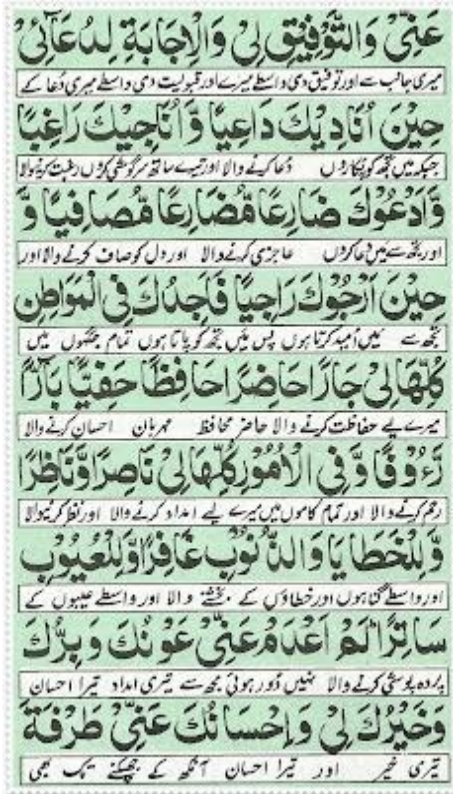 عَنِّیْ وَالتَّوْفِیْقِ لِیْ وَالْاِجَابَةِ لِدُعَآئِیْ
میری جانب سے اور توفیق دی واسطے میرے اور قبولیت دی واسطے میری دُعا کے
حِیْنَ اُنَادِیْكَ دَاعِیًا وَّاُنَاجِیْكَ رَاغِبًا
جبکہ میں تجھ کو پکاروں دُعا کرنے والا اور تیرے ساتھ سرگوشی کروں رغبت کرنیوالا
وَّاَدْعُوْكَ ضَارِعًا مُّضَارِعًا مُّصَافِیًا وَّ
اور تجھ سے میں دعا کروں عاجزی کرنے والا اور دل کو صاف کرنے والا اور
حِیْنَ اَرْجُوْكَ رَاجِیًا فَاَجِدُكَ فِی الْمَوَاطِنِ
تجھ سے میں اُمید کرتا ہوں پس میں تجھ کو پاتا ہوں تمام جگہوں میں
كُلِّهَا لِیْ جَارًا حَاضِرًا حَافِظًا حَفِیًّا بَآرًّا
میرے لیے حفاظت کرنے والا حاضر محافظ مہربان احسان کرنے والا
رَءُوْفًا وَّ فِی الْاُمُوْرِ كُلِّهَا لِیْ نَاصِرًا وَّنَاظِرًا
رحم کرنے والا اور تمام کاموں میں میرے لیے امداد کرنے والا اور نظر کرنیوالا
وَّلِلْخَطَایَا وَالذُّنُوْبِ غَافِرًا وَّلِلْعُیُوْبِ
اور واسطے گناہوں اور خطاؤں کے بخشنے والا اور واسطے عیبوں کے
سَاتِرًا لَمْ اَعْدَمْ عَنِّیْ عَوْنَكَ وَبِرَّكَ
پردہ پوشی کرنے والا نہیں دُور ہوئی مجھ سے تیری امداد تیرا احسان
وَخَیْرَكَ لِیْ وَاِحْسَانَكَ عَنِّیْ طَرْفَةَ
تیری خیر اور تیرا احسان آنکھ کے جھپکنے تک بھی